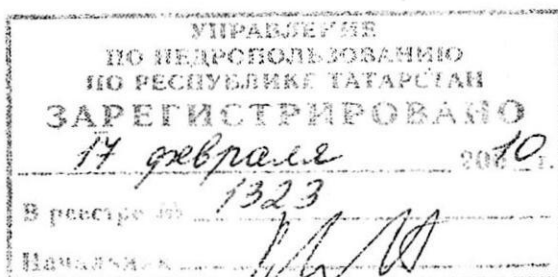 УПРАВЛЕНИЕ
ПО НЕДРОПОЛЬЗОВАНИЮ
ПО РЕСПУБЛИКЕ ТАТАРСТАН
ЗАРЕГИСТРИРОВАНО
17 февраля 2010 г.
В реестре № 1323
Начальник